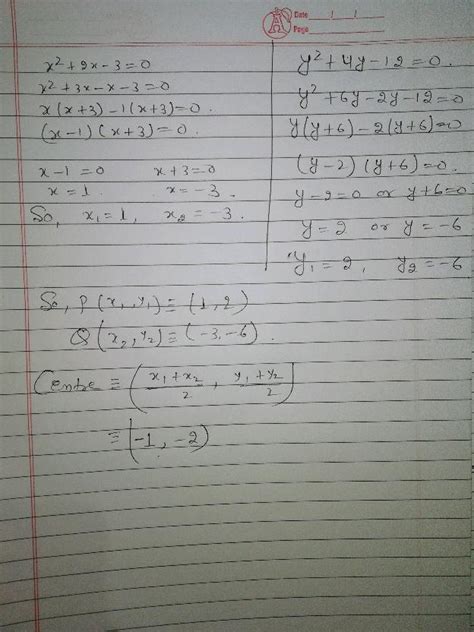 Date / /
Page
x² + 2x - 3 = 0
x² + 3x - x - 3 = 0
x(x+3) - 1(x+3) = 0
(x-1)(x+3) = 0.
x - 1 = 0 x + 3 = 0
x = 1. x = -3.
So, x₁ = 1, x₂ = -3.
y² + 4y - 12 = 0.
y² + 6y - 2y - 12 = 0
y(y+6) - 2(y+6) = 0
(y-2)(y+6) = 0.
y - 2 = 0 or y + 6 = 0
y = 2 or y = -6
y₁ = 2, y₂ = -6
So, P(x₁, y₁) ≡ (1, 2)
Q(x₂, y₂) ≡ (-3, -6).
Centre ≡ (x₁ + x₂ / 2, y₁ + y₂ / 2)
≡ (-1, -2)